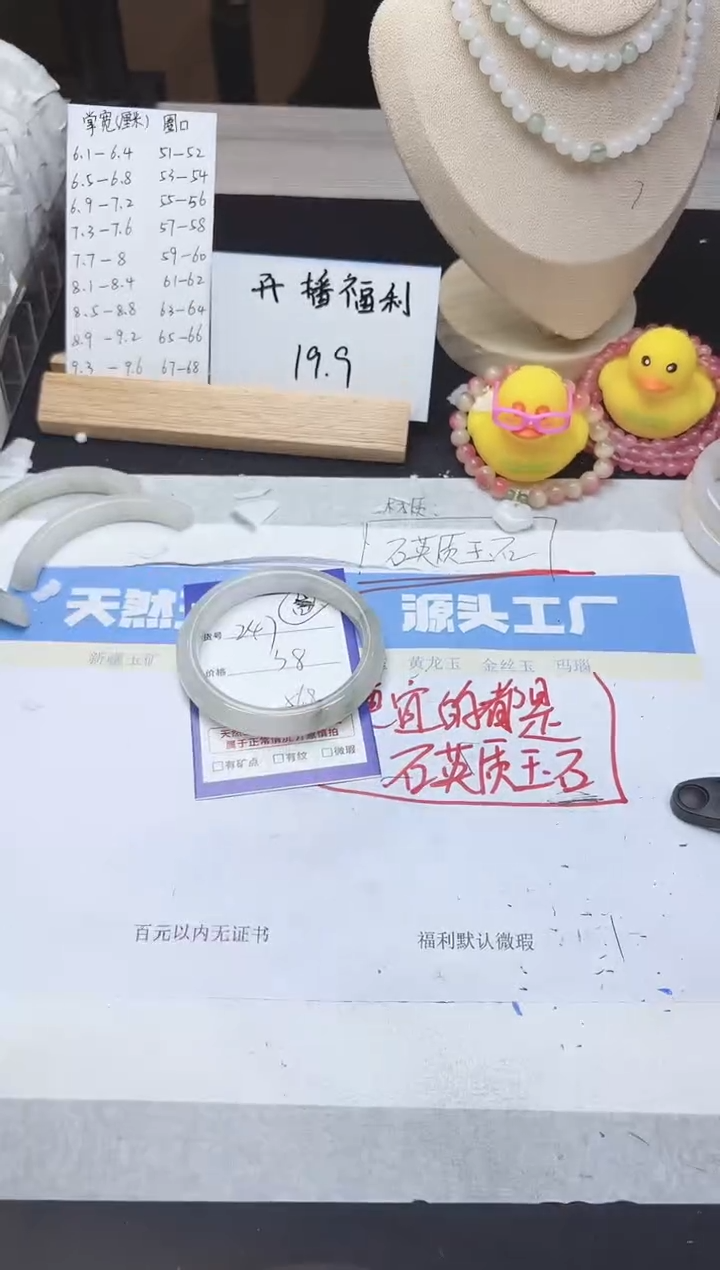 掌宽(厘米) 圈口
6.1-6.4 51-52
6.5-6.8 53-54
6.9-7.2 55-56
7.3-7.6 57-58
7.7-8 59-60
8.1-8.4 61-62
8.5-8.8 63-64
8.9-9.2 65-66
9.3-9.6 67-68
开播福利
19.9
材质:
石英质玉石
天然
源头工厂
新疆玉矿
黄龙玉 金丝玉 玛瑙
货号 247
价格 58
属于正常情况介意慎拍
□有矿点 □有纹 □微瑕
宜的都是
石英质玉石
百元以内无证书
福利默认微瑕